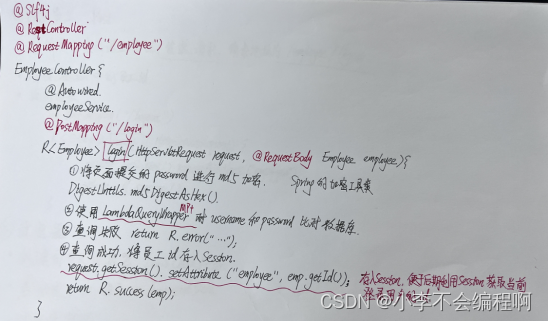 @Slf4j
@RestController
@RequestMapping ("/employee")
EmployeeController {
@Autowired.
employeeService.
@PostMapping ("/login")
R<Employee> login (HttpServletRequest request, @RequestBody Employee employee) {
①将页面提交的 password 进行 md5 加密. Spring的加密工具类
DigestUtils. md5DigestAsHex().
MP+
②使用 LambdaQueryWrapper 对 username 和 password 比对数据库.
③查询失败 return R.error("…");
④查询成功, 将员工 id 存入 Session.
request.getSession(). setAttribute ("employee", emp.getId()); 存入Session, 便于后期利用Session获取当前
return R. success (emp);
}
CSDN @小李不会编程啊